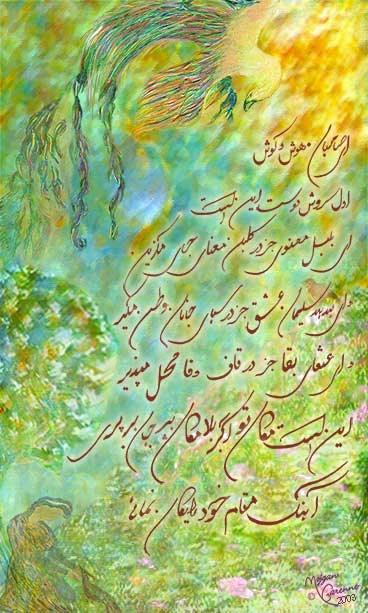 ای صاحبان هوش و گوش
اول سروش دوست این است
ای بلبل معنوی جز در گلبن معانی جای مگزین
و ای هدهد سلیمان عشق جز در سبای جانان وطن مگیر
و ای عنقای بقا جز در قاف وفا محل مپذیر
این است مکان تو اگر بلامکان بپر جان برپری
و آهنگ مقام خود رایگان نمائی
© 2003